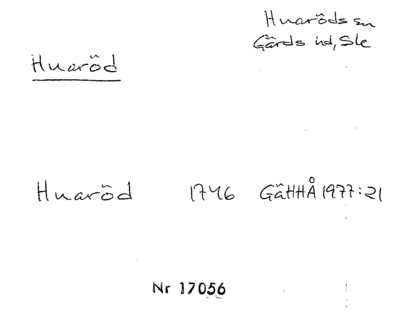 Huaröds sn
Gärds hd, Sk
Huaröd
Huaröd 1746 GäHHÅ 1977:21
Nr 17056